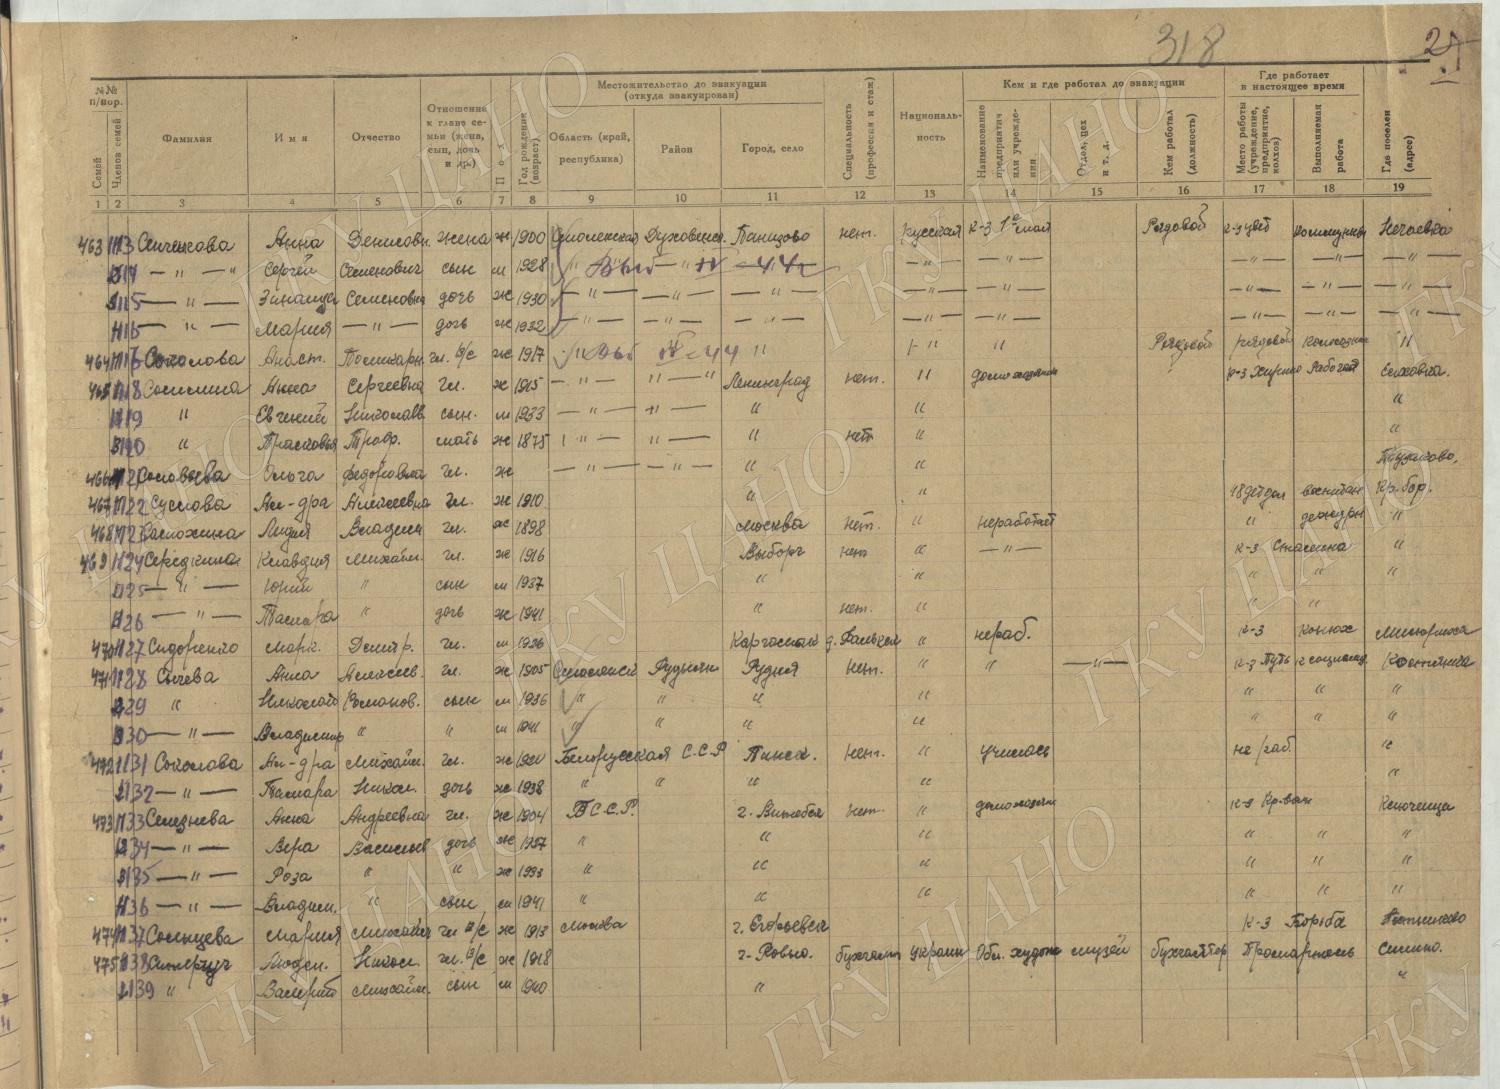 318
21
№№ п/пор.
Семей
Членов семей
Фамилия
Имя
Отчество
Отношение к главе семьи (жена, сын, дочь и др.)
Пол
Год рождения (возраст)
Местожительство до эвакуации (откуда эвакуирован)
Область (край, республика)
Район
Город, село
Специальность (профессия и стаж)
Националь-ность
Кем и где работал до эвакуации
Наименование предприятия или учрежде-ния
Отдел, цех и т. д.
Кем работал (должность)
Где работает в настоящее время
Место работы (учреждение, предприятие, колхоз)
Выполняемая работа
Где поселен (адрес)
1 2 3 4 5 6 7 8 9 10 11 12 13 14 15 16 17 18 19
463 1113 Сенченкова Анна Денисовн. жена ж 1900 Смоленская Духовщин. Панизово нет. русская к-з 1е мая Рядовой Нечаевка
— " — Сергей Семенович сын м 1928 " Выб — " — 44г — " — — " — — " — — " —
1115 — " — Зинаида Семеновна дочь ж 1930 — " — — " — — " — — " — — " — — " — — " — — " —
1116 — " — Мария — " — дочь ж 1932 — " — — " — — " — — " — — " — — " — — " — — " —
464 1117 Соколова Анаст. Поликарп. гл. в/с ж 1917 " Выб 44 " " " Рядовой рядовой колхозник "
465 1118 Сосипина Анна Сергеевна гл. ж 1915 — " — " — " Ленинград нет. " домохозяйка Рабочей
1119 " Евгений Николаев. сын. м 1933 — " — " — " " "
1120 " Прасковья Троф. мать ж 1875 " — " — " нет " "
466 1121 Соловьева Ольга Федоровна гл. ж — " — — " — " "
467 1122 Суслова Ал-дра Алексеевна гл. ж 1910 " " 18 детдом воспитат Кр. бор.
468 1123 Лидия Владим гл. ж 1898 Москва нет. " неработает " дежурн "
469 1124 Середкина Клавдия Михайл. гл. ж 1916 Выборг нет " — " — к-з "
1125 — " — Юрий " сын м 1937 " " " " "
1126 — " — Тамара " дочь ж 1941 " нет. " " "
470 1127 Сидоренко Марк. Дмитр. гл. м 1926 " нераб. к-з конюх
471 1128 Сычева Анна Алексеев. гл. ж 1905 Смоленск Руднян Рудня нет. " " — " — к-з Путь к социализ.
1129 " Николай Романов. сын м 1936 " " " " " " "
1130 — " — Владимир " " м 1941 " " " " " " "
472 1131 Соколова Ал-дра Михайл. гл. ж Белорусская С.С.Р Пинск. нет. " училась не раб. "
1132 — " — Тамара Никол. дочь ж 1938 " " " " "
473 1133 Селезнева Анна Андреевна гл. ж 1904 БССР. г. Витебск нет. " домохозяй Ключища
1134 — " — Вера Васильев дочь ж 1937 " " " " " "
1135 — " — Роза " " ж 1933 " " " " " "
1136 — " — Владим. " сын м 1941 " " " " " "
474 1137 Солнцева Мария Михайл гл в/с ж 1913 Москва г. Егорьевск к-з Борьба
475 1138 Людм. Никол. гл. в/с ж 1918 г. Ровно. бухгалт украин Обл. худож музей бухгалтер
1139 " Валерий Михайл. сын м 1940 " "
ГКУ ЦАНО